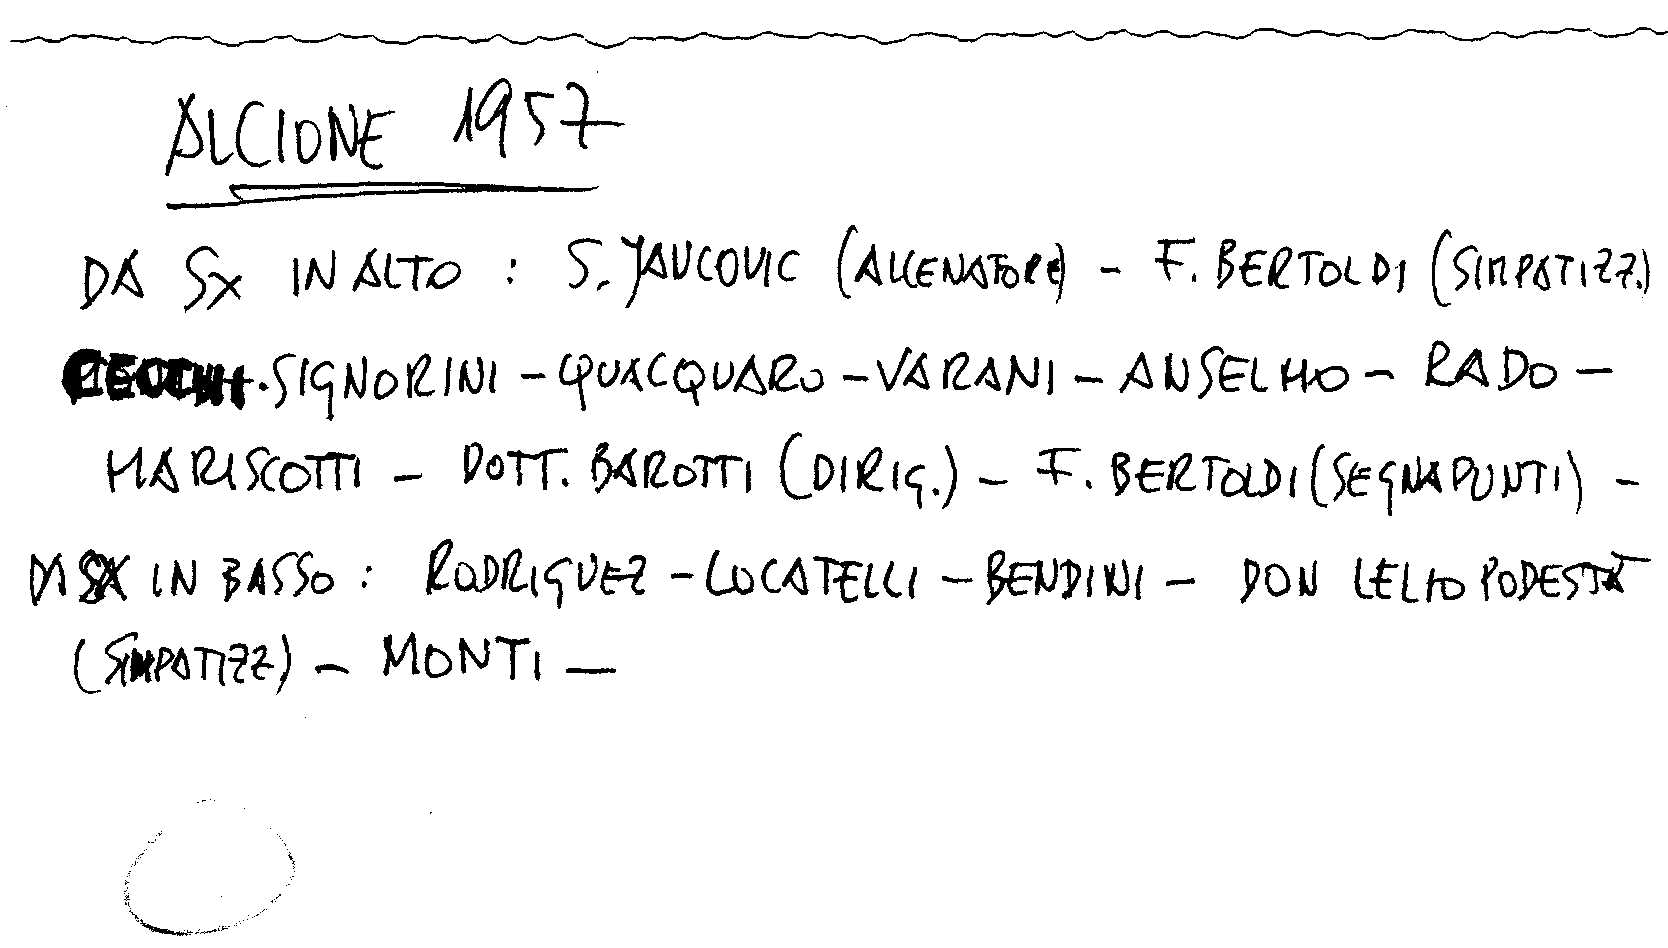 ALCIONE 1957
DA SX IN ALTO : S. JAUCOVIC (ALLENATORE) - F. BERTOLDI (SIMPATIZZ.)
SIGNORINI - QUACQUARO - VARANI - ANSELMO - RADO -
MARISCOTTI - DOTT. BAROTTI (DIRIG.) - F. BERTOLDI (SEGNAPUNTI) -
DA SX IN BASSO : RODRIGUEZ - LOCATELLI - BENDINI - DON LELIO PODESTÀ
(SIMPATIZZ) - MONTI -